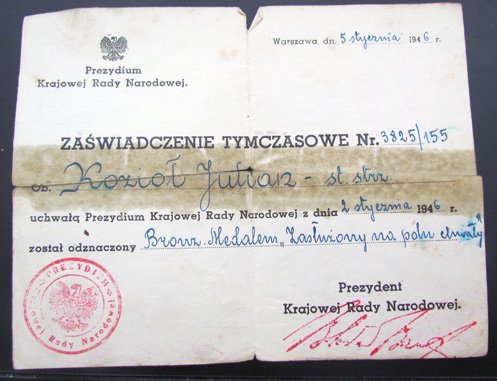 Warszawa, dn. 5 stycznia 1946 r.
Prezydium
Krajowej Rady Narodowej.
ZAŚWIADCZENIE TYMCZASOWE Nr. 3825/155
Ob. Kozioł Julian - st. strz.
uchwałą Prezydium Krajowej Rady Narodowej z dnia 2 stycznia 1946 r.
został odznaczony Bronz. Medalem „Zasłużony na polu chwały"
Prezydent
Krajowej Rady Narodowej.
PREZYDIUM
Krajowej Rady Narodowej